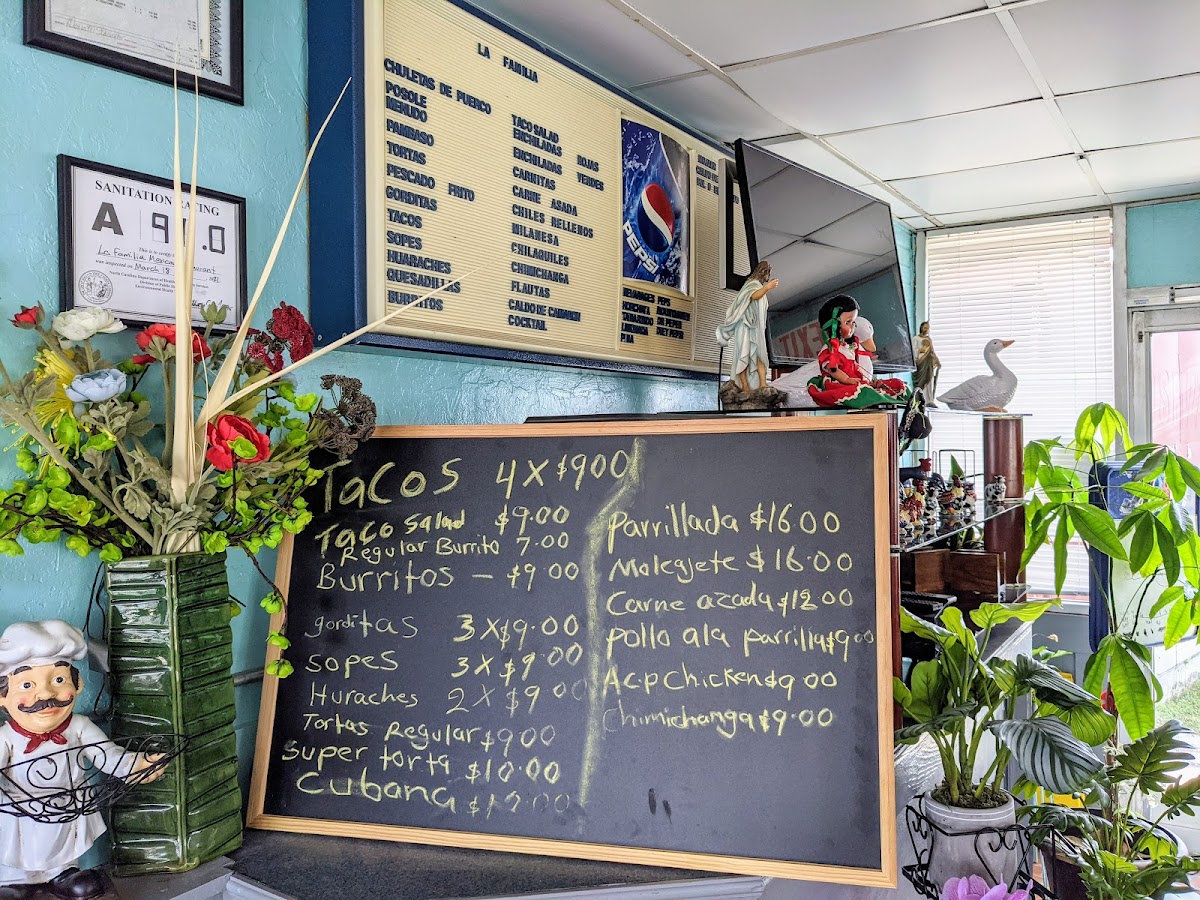 SANITATION RATING
A
La Familia
March 18
LA FAMILIA
CHULETAS DE PUERCO
POSOLE
MENUDO
PAMBASO
TORTAS
PESCADO FRITO
GORDITAS
TACOS
SOPES
HUARACHES
QUESADILLAS
BURRITOS
TACO SALAD
ENCHILADAS ROJAS
ENCHILADAS VERDES
CARNITAS
CARNE ASADA
CHILES RELLENOS
MILANESA
CHILAQUILES
CHIMICHANGA
FLAUTAS
CALDO DE CAMARON
COCKTAIL
PEPSI
EXIT
Tacos 4X$900
Taco Salad $9.00
Regular Burrito 7.00
Burritos - $9.00
gorditas 3X$9.00
sopes 3X$9.00
Huraches 2X$9.00
Tortas Regular $9.00
Super torta $10.00
Cubana
parrillada $16.00
Molegjete $16.00
Carne azada $12.00
pollo ala parrilla $9.00
A.c.p Chicken $9.00
Chimichanga $9.00